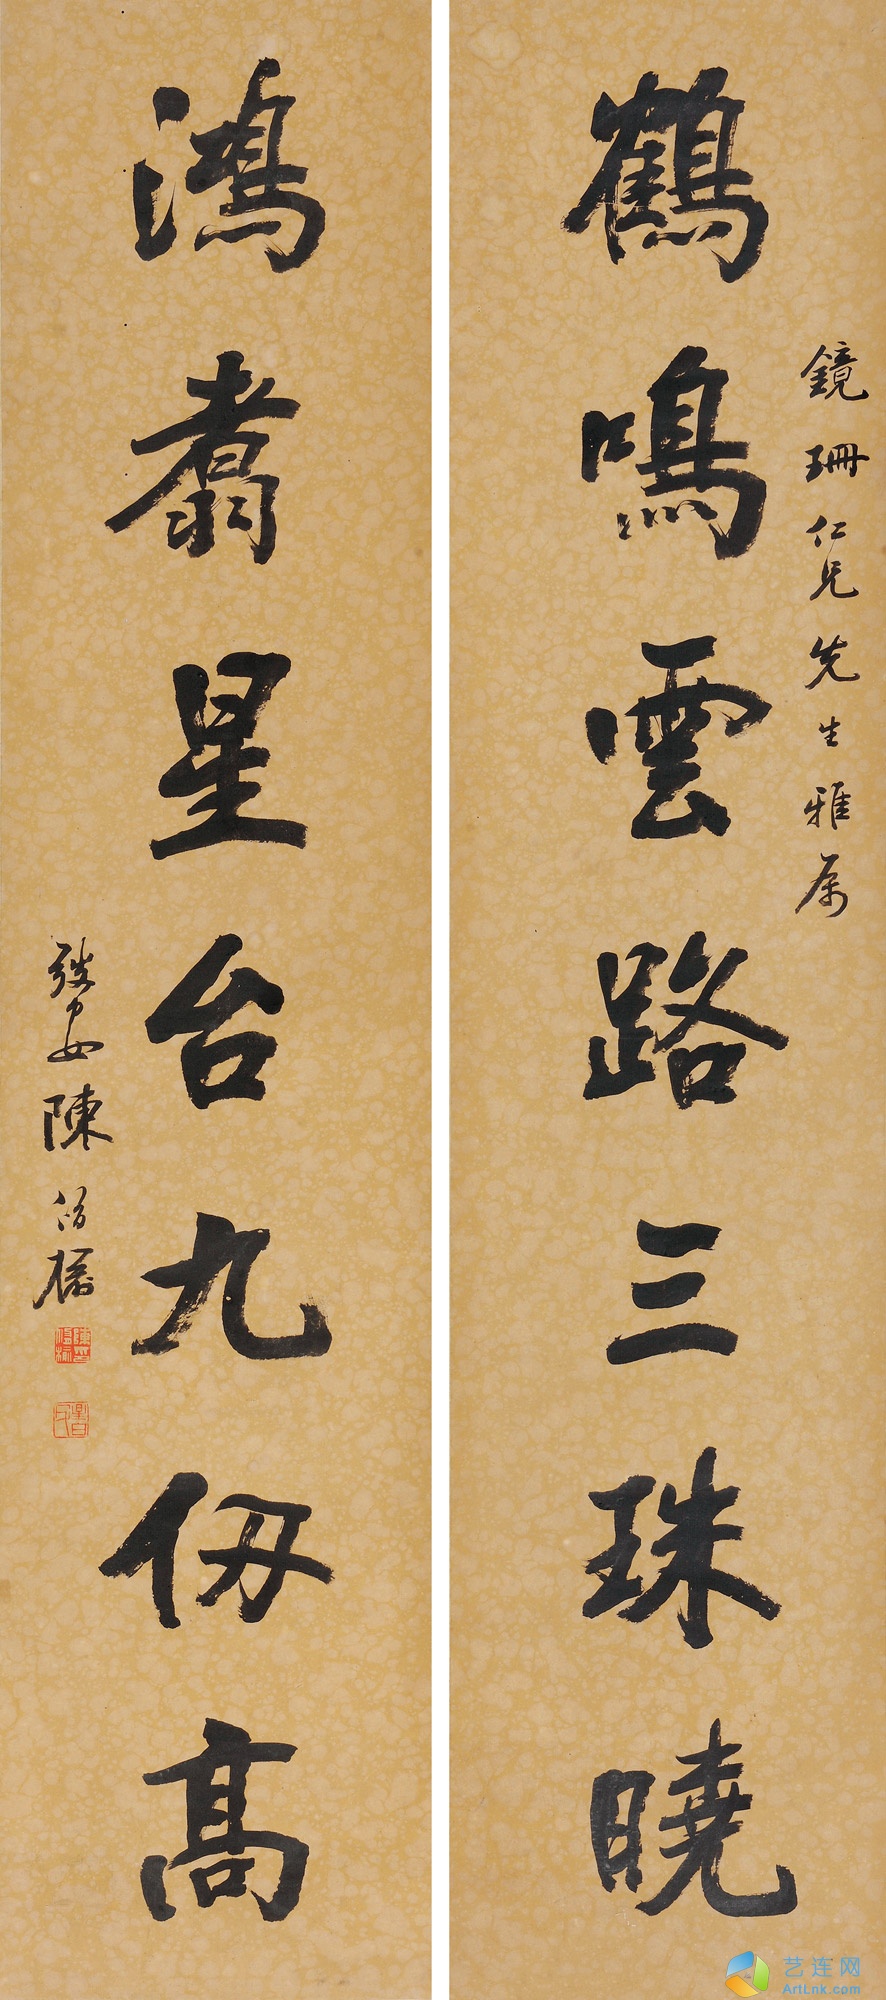 鏡珊仁兄先生雅属
鶴鳴雲路三珠曉
鴻翥星台九仞高
陳
艺连网
ArtLnk.com